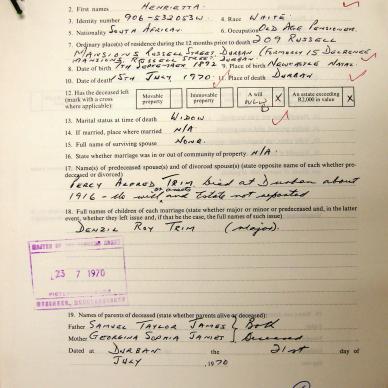 2. First names HENRIETTA
3. Identity number 906-532053W 4. Race WHITE
5. Nationality SOUTH AFRICAN 6. Occupation OLD AGE PENSIONER
7. Ordinary place(s) of residence during the 12 months prior to death 209 RUSSELL
MANSIONS RUSSELL STREET, DURBAN (FORMERLY 15
MANSIONS, RUSSELL STREET, DURBAN
8. Date of birth 7TH SEPTEMBER 1892 9. Place of birth NEWCASTLE NATAL
10. Date of death 15TH JULY 1970 11. Place of death DURBAN
12. Has the deceased left (mark with a cross where applicable)
Movable property
Immovable property
A will X
An estate exceeding R2,000 in value X
13. Marital status at time of death WIDOW
14. If married, place where married N/A
15. Full name of surviving spouse NONE.
16. State whether marriage was in or out of community of property N/A.
17. Name(s) of predeceased spouse(s) and of divorced spouse(s) (state opposite name of each whether predeceased or divorced)
PERCY ALFRED TRIM Died at Durban about
1916 - No will or assets and Estate not reported
18. Full names of children of each marriage (state whether major or minor or predeceased and, in the latter event, whether they left issue and, if that be the case, the full names of such issue).
DENZIL ROY TRIM (Major)
23 7 1970
19. Names of parents of deceased (state whether parents alive or deceased):
Father SAMUEL TAYLOR JAMES } Both
Mother GEORGINA SOPHIA JAMES } Deceased
Dated at DURBAN the 21st day of
JULY, 1970